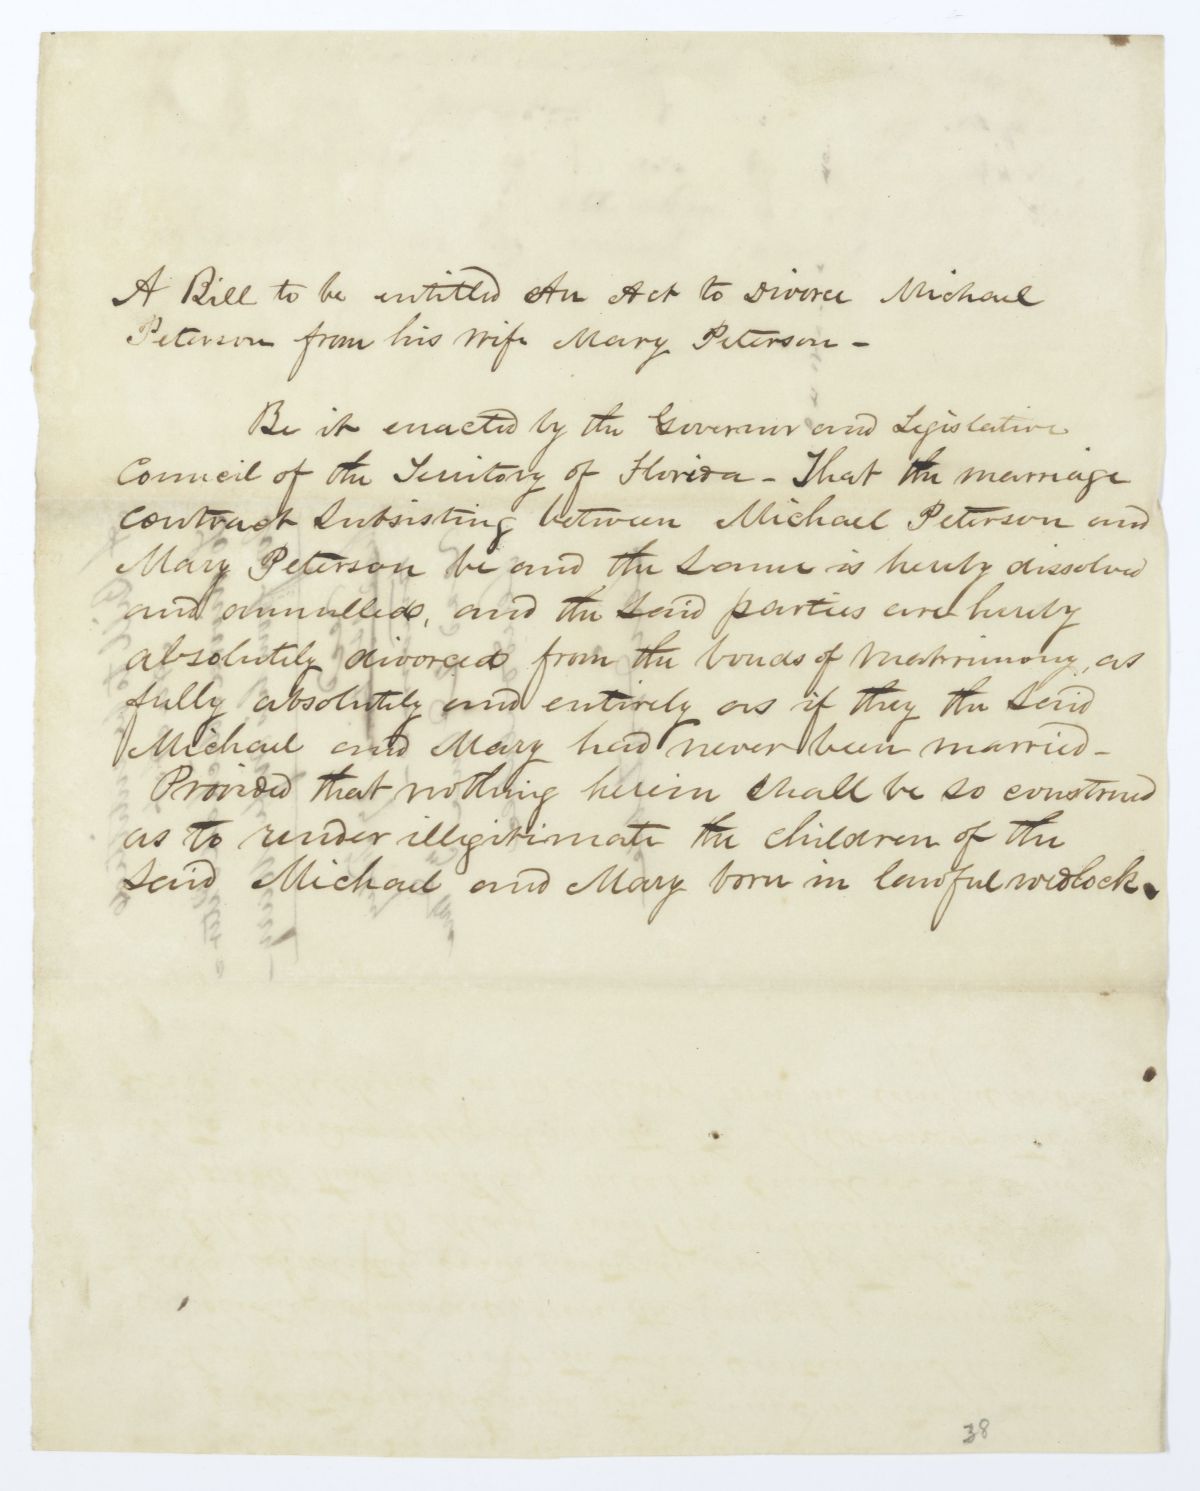 A Bill to be entitled An Act to Divorce Michael
Peterson from his wife Mary Peterson -
Be it enacted by the Governor and Legislative
Council of the Territory of Florida - That the marriage
contract Subsisting between Michael Peterson and
Mary Peterson be and the Same is hereby dissolved
and annulled, and the Said parties are hereby
absolutely divorced from the bonds of Matrimony, as
fully absolutely and entirely as if they the Said
Michael and Mary had never been married -
Provided that nothing herein Shall be so construed
as to render illegitimate the children of the
Said Michael and Mary born in lawful wedlock.
38